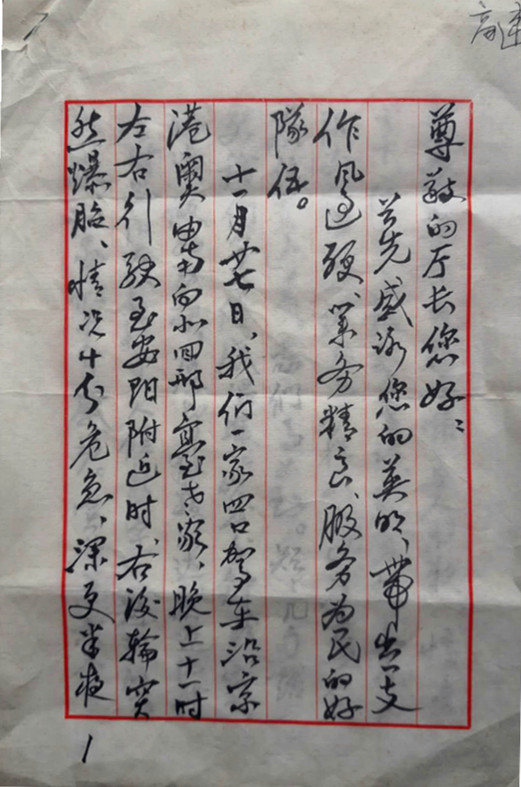 尊敬的厅长您好:
首先感谢您的英明、带出一支
作风过硬、业务精良、服务为民的好
队伍。
十一月廿七日、我们一家四口驾车沿京
港奥由南向北回邢台老家、晚上十一时
左右行驶至安阳附近时、右后轮突
然爆胎、情况十分危急、深更半夜
1